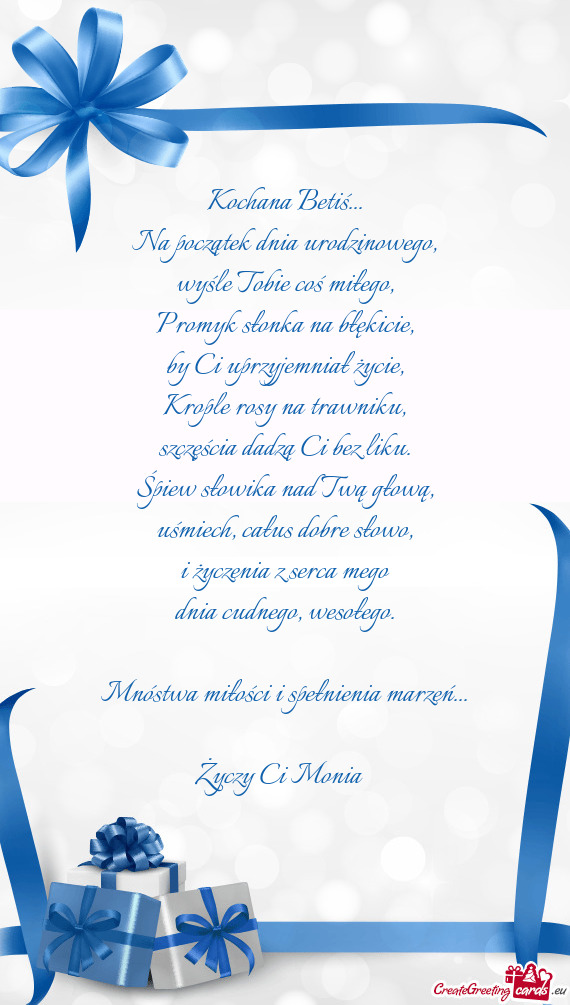 Kochana Betiś...
Na początek dnia urodzinowego,
wyśle Tobie coś miłego,
Promyk słonka na błękicie,
by Ci uprzyjemniał życie,
Krople rosy na trawniku,
szczęścia dadzą Ci bez liku.
Śpiew słowika nad Twą głową,
uśmiech, całus dobre słowo,
i życzenia z serca mego
dnia cudnego, wesołego.
Mnóstwa miłości i spełnienia marzeń...
Życzy Ci Monia
CreateGreeting cards .eu